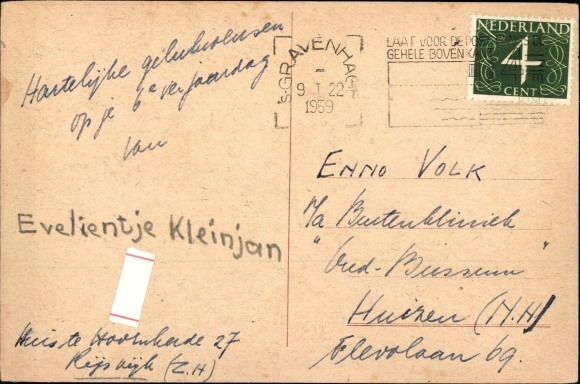 Hartelijke gelukwensen
op je 6e verjaardag
van
Evelientje Kleinjan
Huis te Hoornkade 27
Rijswijk (Z.H)
's-GRAVENHAGE
9 I 22
1959
LAAT VOOR DE POST
GEHELE BOVENKANT
NEDERLAND
4
CENT
ENNO VOLK
p/a Buitenkliniek
"Oud-Bussem"
Huizen (N.H)
Flevolaan 69.